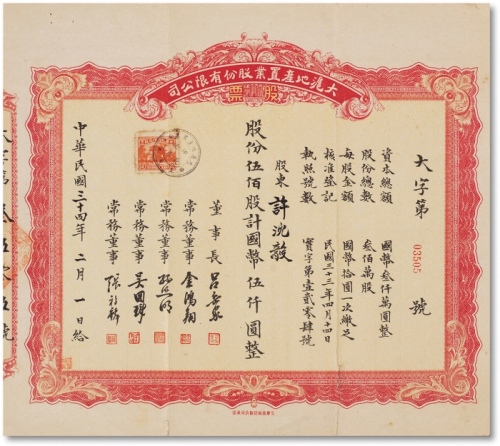 大滬地產置業股份有限公司
股票
大字第 03505 號
資本總額 國幣叁仟萬圓整
股份總數 叁佰萬股
每股金額 國幣拾圓一次繳足
核准登記 民國三十三年四月十四日
執照號數 實字第壹貳零肆號
股東 許沈毅
股份伍佰股計國幣伍仟圓整
董事長
常務董事 金鴻翔
常務董事
常務董事 吳國璋
常務董事
中華民國三十四年二月一日給
大字第叁伍零伍號